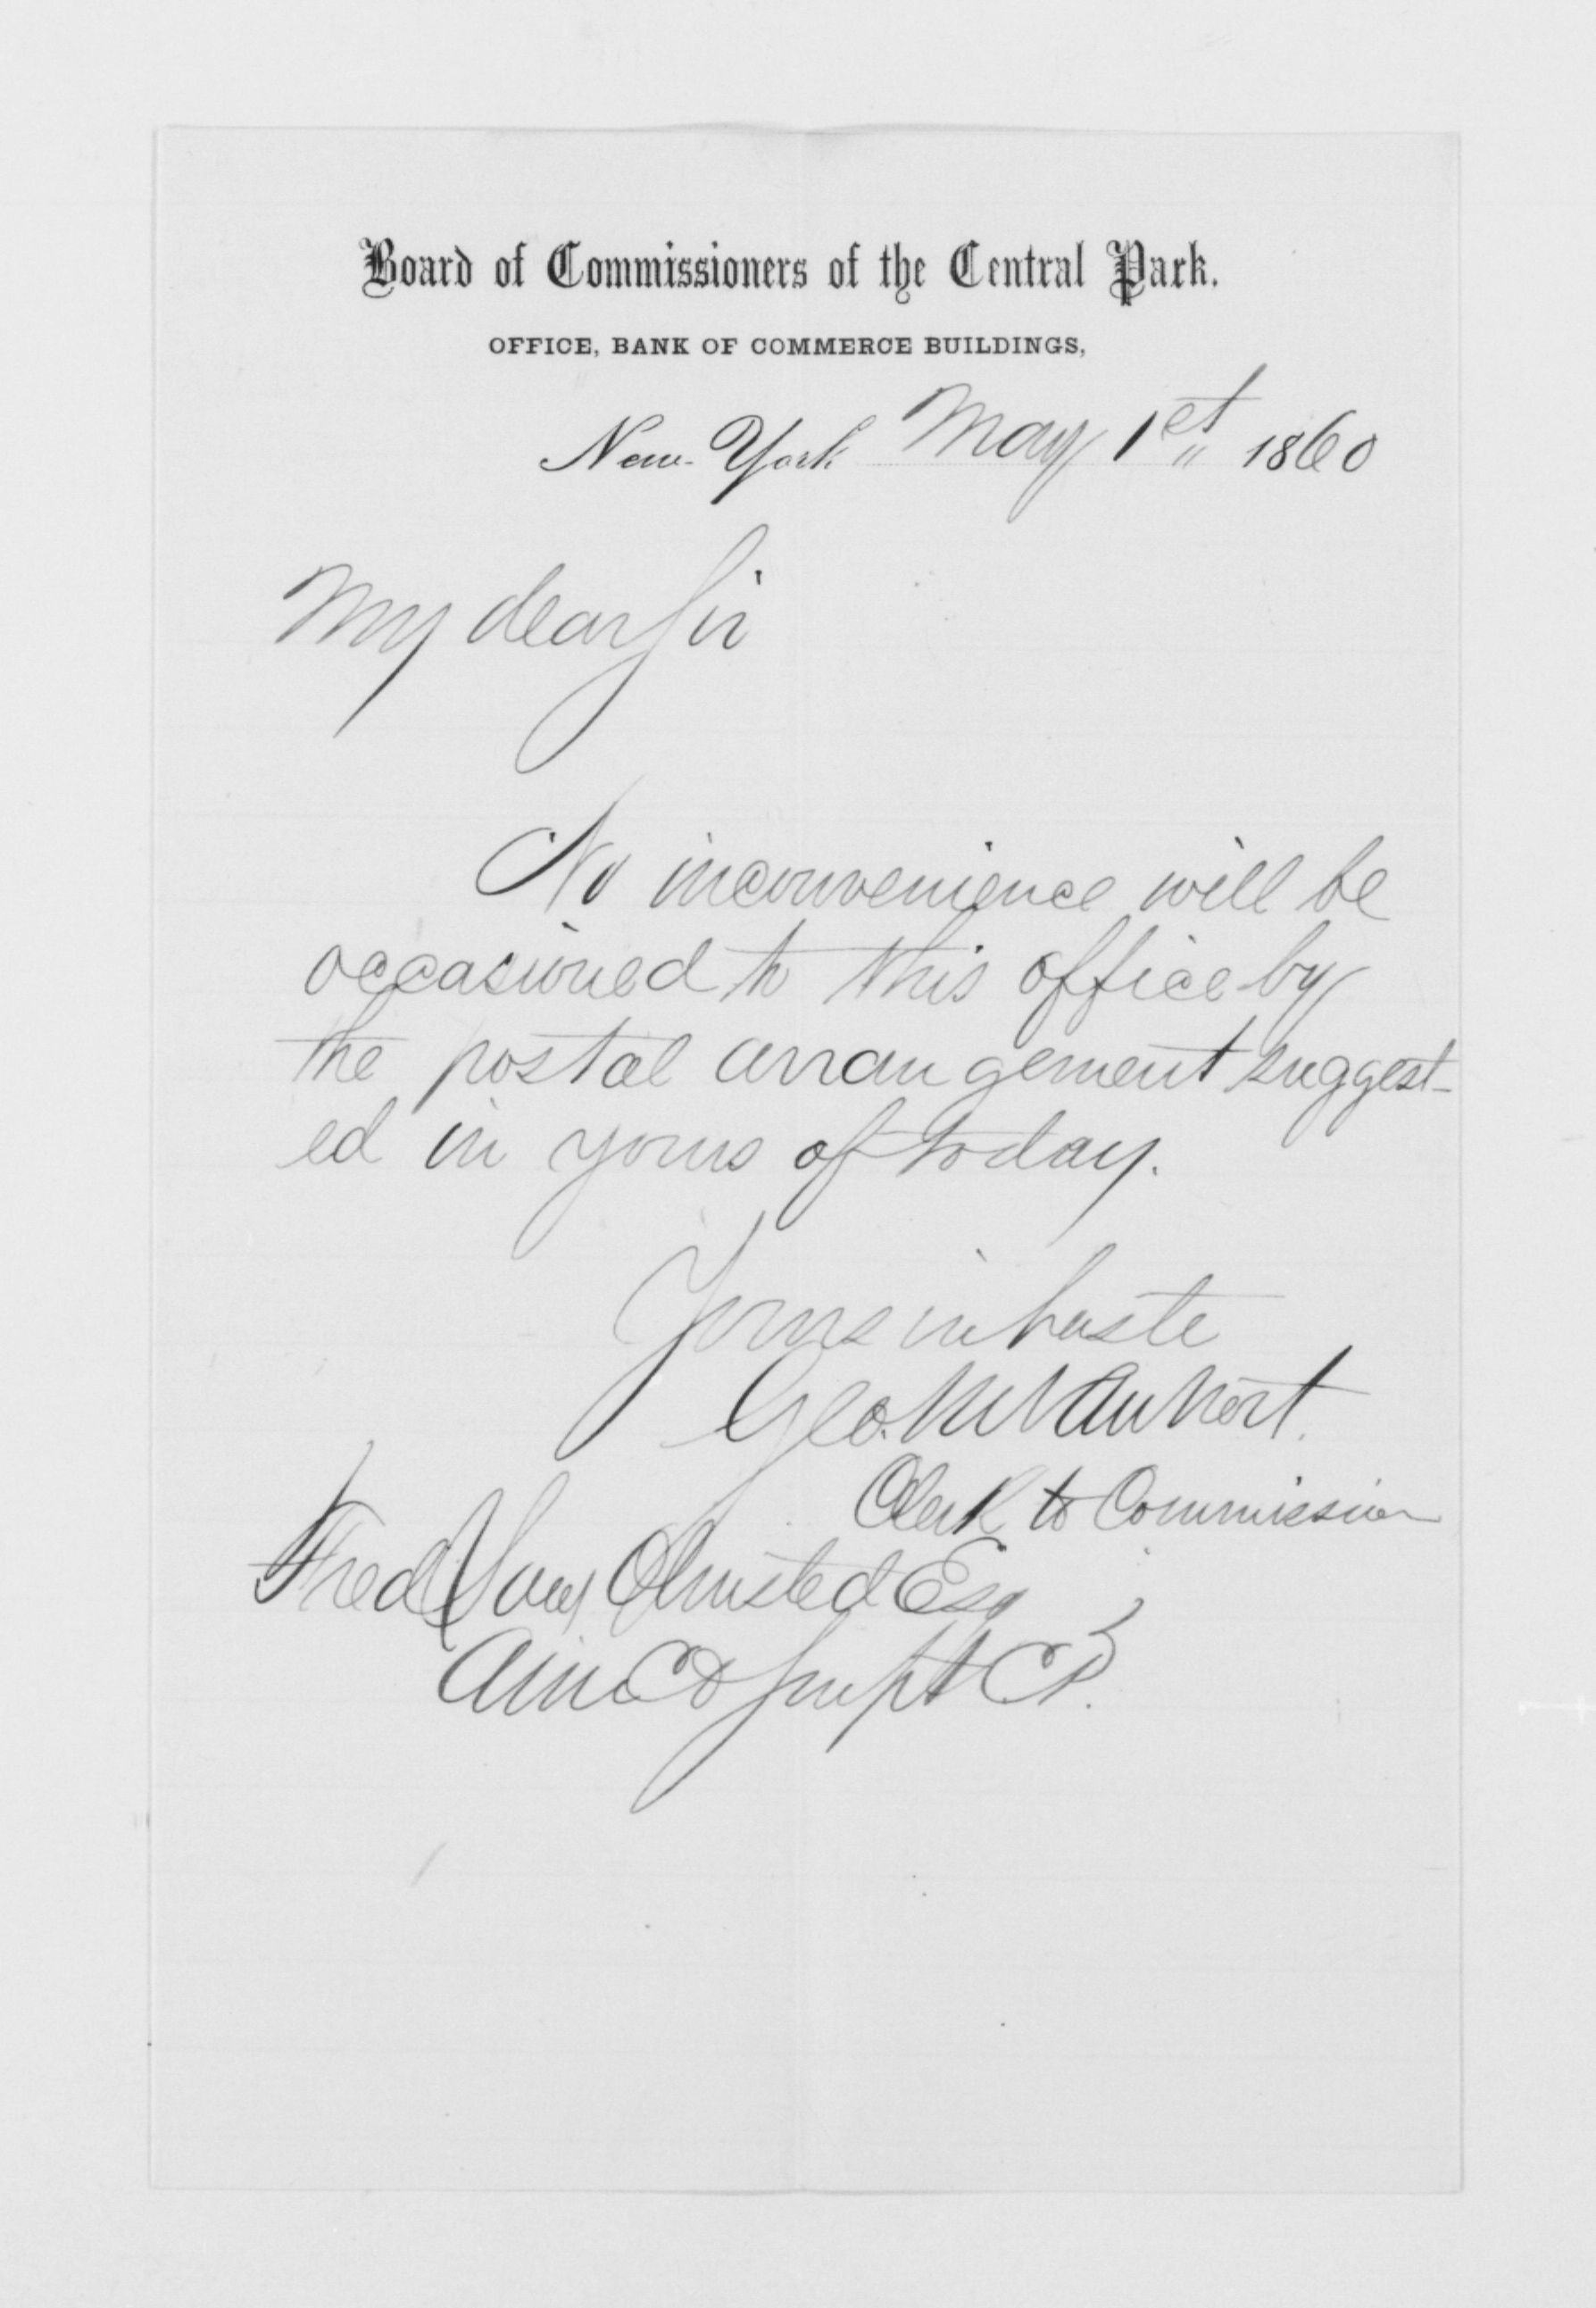 Board of Commissioners of the Central Park.
OFFICE, BANK OF COMMERCE BUILDINGS,
New-York May 1st 1860
My dear Sir
No inconvenience will be
occasioned to this office by
the postal arrangement suggest-
ed in yours of today.
Yours in haste
Geo. M Van Nort.
Clerk to Commission
Fred Law Olmsted Esq
& Supt C.P.